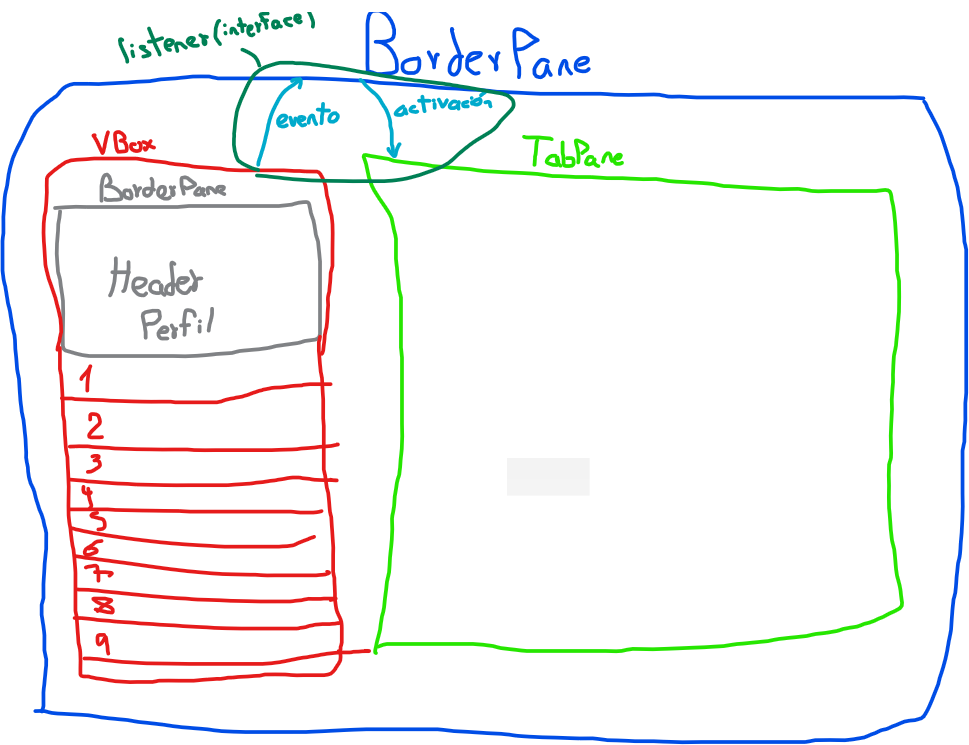 listener(interface)
BorderPane
evento
activación
VBox
TabPane
BorderPane
Header
Perfil
1
2
3
4
5
6
7
8
9